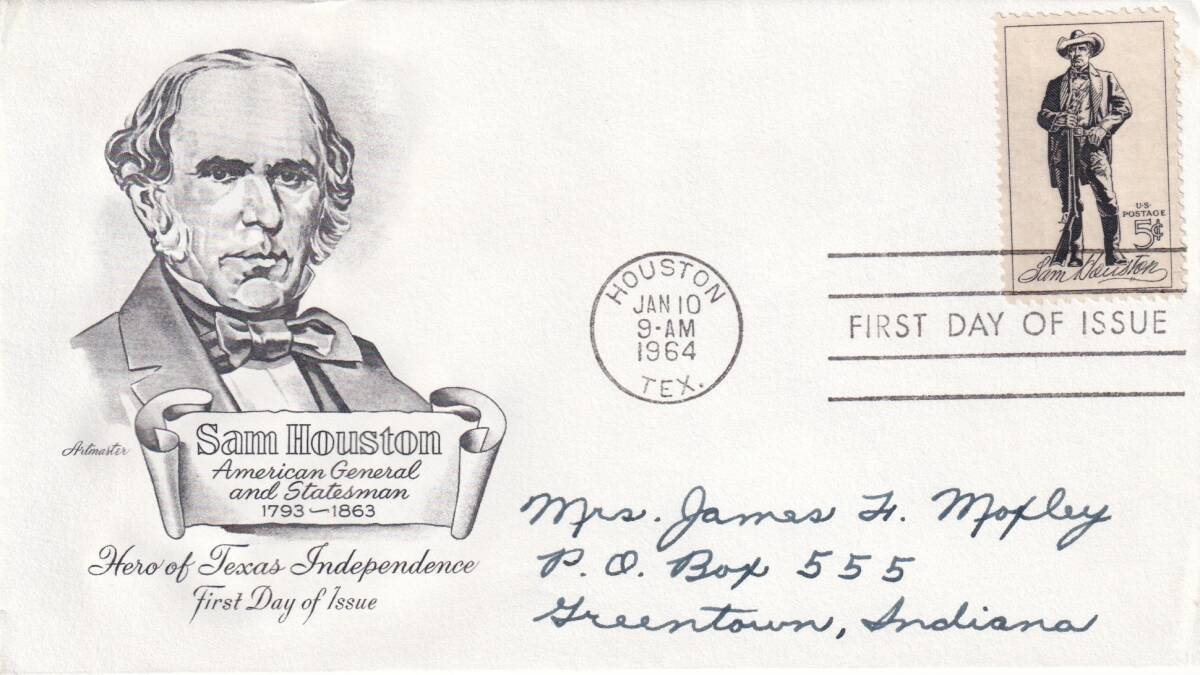 U.S.
POSTAGE
5¢
Sam Houston
HOUSTON
JAN 10
9-AM
1964
TEX.
FIRST DAY OF ISSUE
Artmaster
Sam Houston
American General
and Statesman
1793—1863
Hero of Texas Independence
First Day of Issue
Mrs. James F. Moxley
P.O. Box 555
Greentown, Indiana